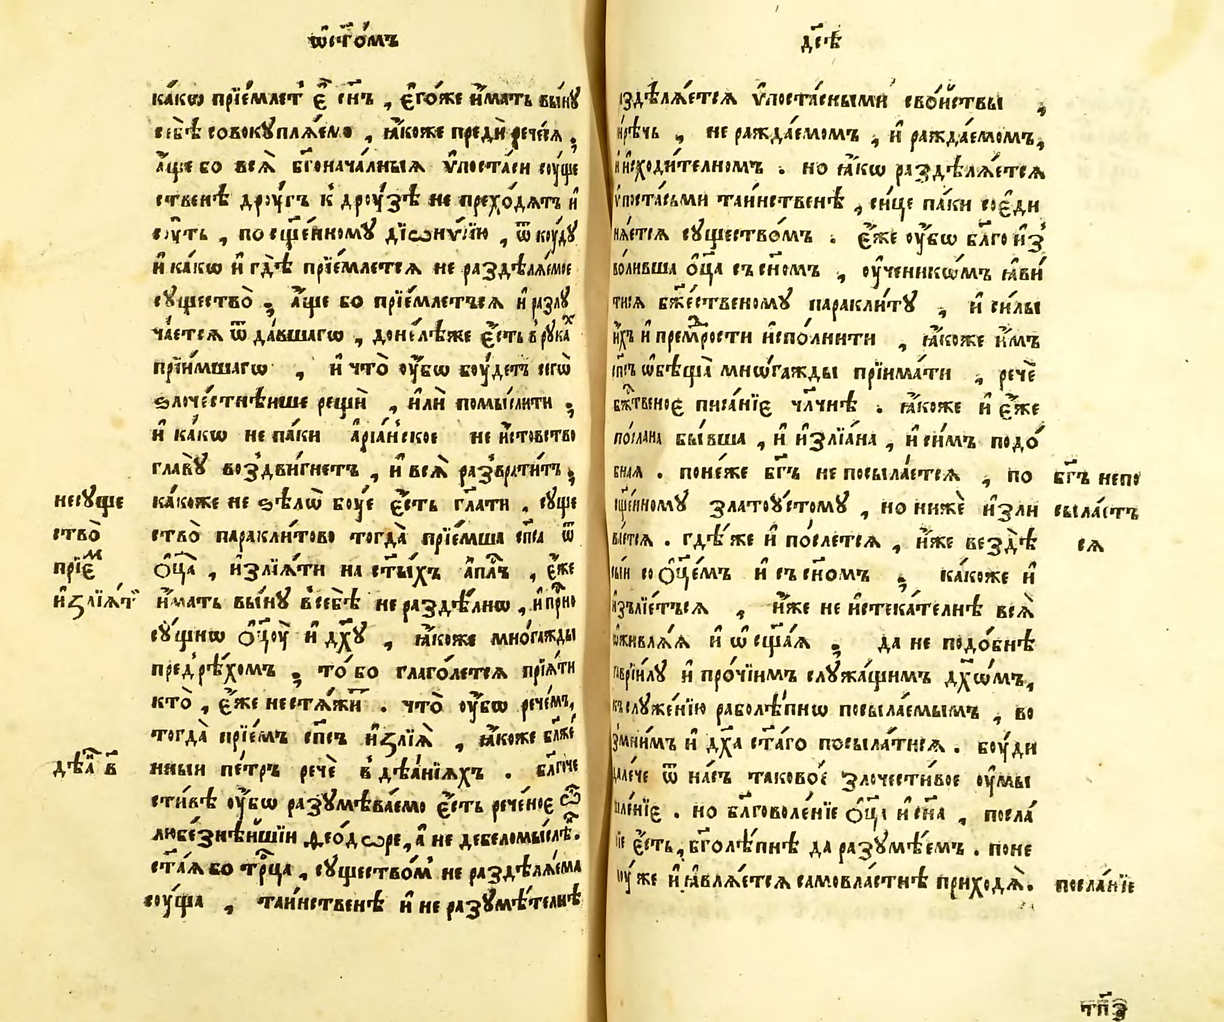 ѡ҆ ст҃о́мъ
дс҃ѣ
ка́кѡ прїе́млет̾ є҆ сн҃ъ , є҆го́же и҆́мать вы́нꙋ
себѣ̀ совокꙋпля́емо , ꙗ҆́коже преди̑ рече́сѧ ,
а҆́ще бо всѧ̑ бг҃онача́лныѧ ѵ҆поста́си сꙋ́ще
ственѣ дрꙋ́гъ к дрꙋ́зѣ не прехо́дѧтъ и҆
сꙋ́ть , по сщ҃е́нномꙋ дїѡни́сїю , ѿ кꙋ́дꙋ
и҆ ка́кѡ и҆ гдѣ̀ прїе́млетсѧ не раздѣлѧ́емое
сꙋщество̀ , а҆́ще бо прїе́млетъсѧ и҆ разлꙋ
ча́етсѧ ѿ да́вшагѡ , до́нелѣже є҆́сть в рꙋка́х
прїи́мшагѡ , и҆ что̀ ᲂу҆́бѡ бꙋ́детъ сегѡ̀
ѕлоче́стнѣише рещѝ , и҆лѝ помы́слити ,
и҆ ка́кѡ не па́ки а҆рїа́нское не и҆́стовство
главꙋ̀ воздви́гнетъ , и҆ всѧ̑ разврати́тъ ,
како́же не ѕѣлѡ̀ бꙋ́е є҆́сть гл҃ати . сꙋще
ство̀ паракли́тово тогда̀ прїе́мша сп҃са ѿ
ѻ҆ц҃а̀ , и҆злїѧ́ти на ст҃ы́хъ а҆пл҃ъ , є҆́же
и҆́мать вы́нꙋ в себѣ̀ не раздѣ́лнѡ , и҆ при́сно
сꙋ́щнѡ ѻ҆ц҃ꙋ̀ и҆ дх҃ꙋ , ꙗ҆́коже мно́гажды
предрѣ́хомъ , то́ бо глаго́летсѧ прїѧ́ти
кто̀ , є҆́же нестѧжѝ . что̀ ᲂу҆́бѡ рече́мъ,
тогда̀ прїе́мъ сп҃съ и҆злїѧ̀ , ꙗ҆́коже бл҃же́
нныи пе́тръ речѐ в дѣѧ́нїѧхъ . бл҃гоче
сти́вѣ ᲂу҆́бѡ разꙋмѣва́емо є҆́сть рече́ное ѽ
любе́знѣйшїи ѳео́дѡре, а҆ не дебеломы́слѣ.
ст҃а́ѧ бо трⷪ҇ца , сꙋщество́м не раздѣлѧ́ема
сꙋ́ща , та́инственѣ и҆ не разꙋмѣ́телнѣ
несꙋще
ство̀
прїе́м
и҆злїѧ́т
дѣѧ̑ в҃
аздѣлѧ́етсѧ ѵ҆поста́сными сво́йствы ,
и҆рѣчь , не ражда́емомъ , и҆ ражда́емомъ,
и҆ исходи́телномъ . но ꙗ҆́кѡ раздѣлѧ́етсѧ
ѵ҆поста́сьми та́инственѣ , си́це па́ки соеди
нѧ́етсѧ сꙋщество́мъ . є҆́же ᲂу҆́бѡ бл҃го и҆з̾
во́ливша ѻ҆ц҃а съ сн҃омъ , ᲂу҆ченикѡ́мъ ꙗ҆ви́
тисѧ бж҃е́ственомꙋ паракли́тꙋ , и҆ си́лы
и҆́хъ и҆ премⷣрости и҆спо́лнити , ꙗ҆́коже и҆́мъ
сп҃съ ѡ҆бѣща̀ мно́гажды прїима́ти , рече̑
бж҃твеное писа́нїе чл҃чнѣ . ꙗ҆́коже и҆ є҆́же
по́слана бы́вша , и҆ и҆злїа́на , и҆ си́мъ подо́
бнаѧ . поне́же бг҃ъ не посыла́етсѧ , по
сщ҃е́нномꙋ златоꙋ́стомꙋ , но нижѐ и҆зли
ва́етсѧ . гдѣ́ же и҆ по́слетсѧ , и҆́же вездѣ̀
сы́и со ѻ҆ц҃е́мъ и҆ съ сн҃омъ , ка́коже и҆
и҆зълїе́тъсѧ , и҆́же не и҆стека́телнѣ всѧ̑
ѡ҆живлѧ́ѧ и҆ ѡ҆ сщ҃а́ѧ , да не подо́бнѣ
гаврїи́лꙋ и҆ про́чїимъ слꙋжа́щимъ дх҃ѡ́мъ,
къ слꙋже́нїю раболѣ́пнѡ посыла́емымъ , во
змни́мъ и҆ дх҃а ст҃а́го посыла́тисѧ . бꙋ́ди
дале́че ѿ на́съ таково́е злочести́вое ᲂу҆мы
шле́нїе . но бл҃говоле́нїе ѻ҆ц҃а и҆ сн҃а , посла́
нїе є҆́сть, бг҃олѣ́пнѣ да разꙋмѣ́емъ . поне
ꙋ́ же и҆ ꙗ҆влѧ́етсѧ самовла́стнѣ приходѧ̀.
бг҃ъ непо
сыла́етъ
сѧ
посла́нїе
тп҃з